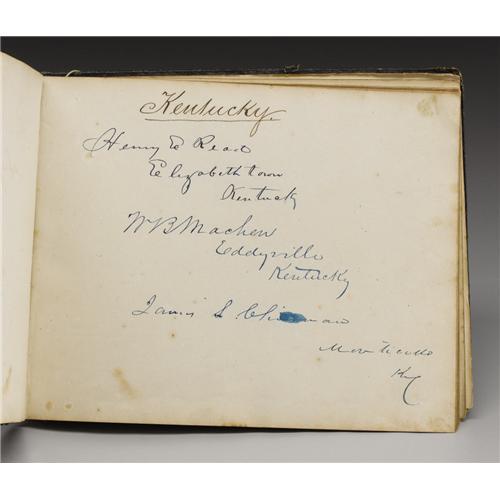 Kentucky.
Henry E Read
Elizabethtown
Kentucky
W B Machen
Eddyville
Kentucky
James S
Monticello
Ky